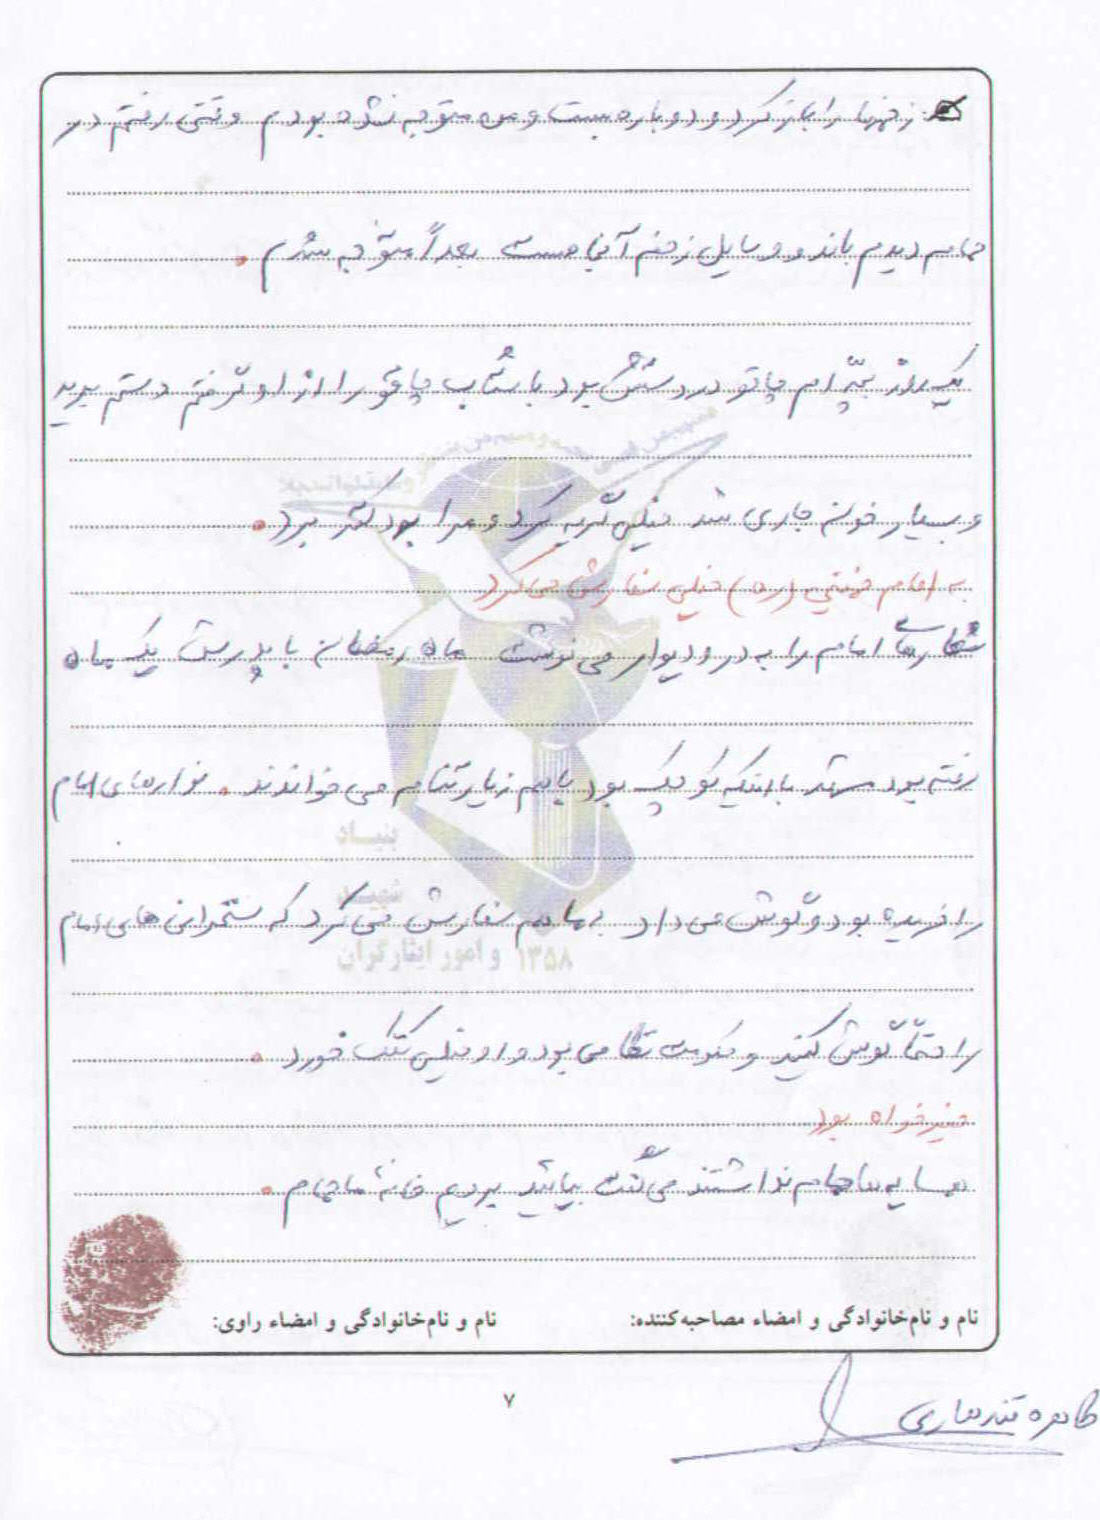 زخمها را باز کرد و دوباره بست و من متوجه نشده بودم وقتی رفتم در
حمام دیدم باند و وسایل زخم آنجا هست بعداً متوجه شدم.
یک روز بچّه ام چاقو در دستش بود با شتاب چاقو را از او گرفتم دستم برید
و بسیار خون جاری شد خیلی گریه کرد و مرا به دکتر برد.
به امام خمینی (ره) خیلی سفارش می کرد
شعارهای امام را به در و دیوار می نوشت ماه رمضان با پدرش یک ماه
رفته بود مشهد با اینکه کودک بود با هم زیارتنامه می خواندند. نوارهای امام
را خریده بود و گوش می داد به ما هم سفارش می کرد که سخنرانی های امام
را حتماً گوش کنید و حکومت نظامی بود و او خیلی کتک خورد.
خیرخواه بود
همسایه ها حمام نداشتند می گفت بیائید برویم خانه ما حمام.
بنیاد
شهید
و امور ایثارگران ۱۳۵۸
نام و نام‌خانوادگی و امضاء مصاحبه‌کننده: نام و نام‌خانوادگی و امضاء راوی:
۷
طاهره قندهاری